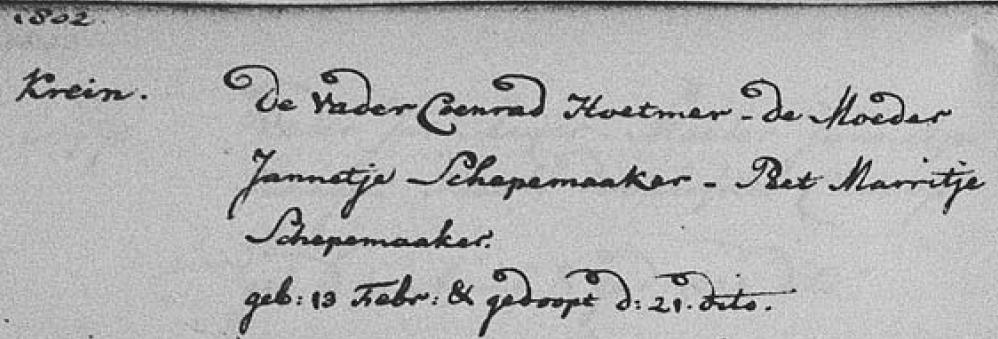 1802.
Krein. De Vader Coenrad Hoetmer - de Moeder
Jannetje Schepemaaker - Peet Marritje
Schepemaaker.
geb: 13 Febr: & gedoopt d: 21. dito.